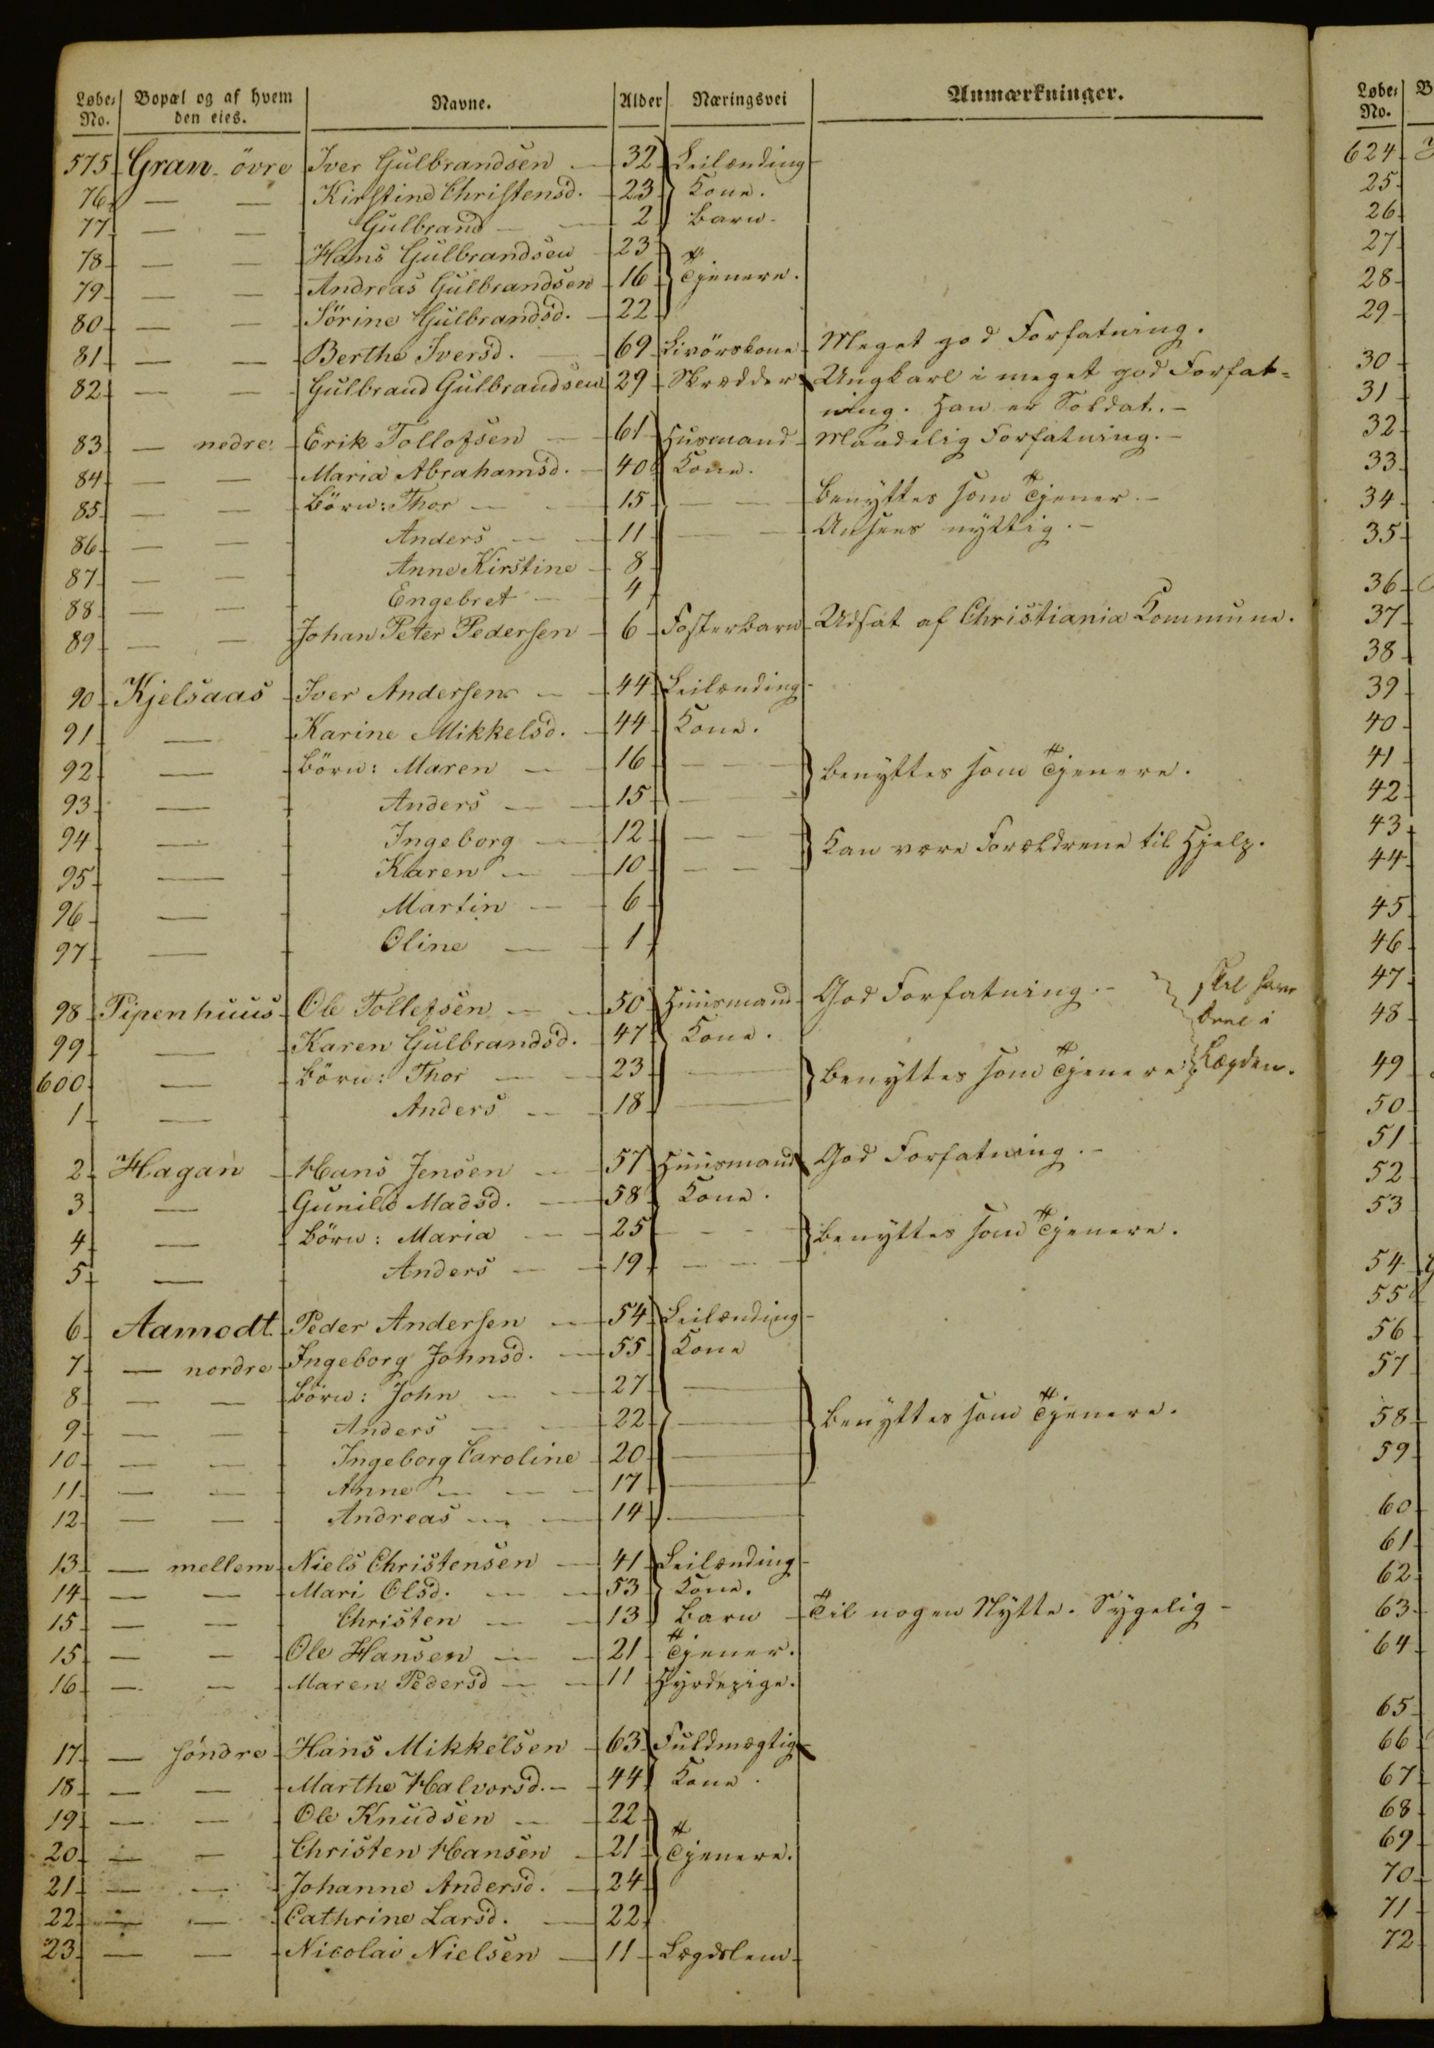 Løbe- No. | Bopæl og af hvem den eies. | Navne. | Alder | Næringsvei | Anmærkninger.
575 | Gran övre | Iver Gulbrandsen | 32 | Leilænding
76 | — — | Kirstine Christensd. | 23 | Kone.
77 | — — | Gulbrand | 2 | Barn.
78 | — — | Hans Gulbrandsen | 23
79 | — — | Andreas Gulbrandsen | 16 | Tjenere.
80 | — — | Sörine Gulbrandsd. | 22
81 | — — | Berthe Iversd. | 69 | Livörskone | Meget god Forfatning.
82 | — — | Gulbrand Gulbrandsen | 29 | Skrædder | Ungkarl i meget god Forfat-
ning. Han er Soldat.
83 | — nedre | Erik Tollofsen | 61 | Husmand | Maadelig Forfatning.
84 | — — | Maria Abrahamsd. | 40 | Kone.
85 | — — | Börn: Thor | 15 | — — | Benyttes som Tjener.
86 | — — | Anders | 11 | — — | Ansees nyttig.
87 | — — | Anne Kirstine | 8
88 | — — | Engebret | 4
89 | — — | Johan Peter Pedersen | 6 | Fosterbarn | Udsat af Christiania Kommune.
90 | Kjelsaas | Iver Andersen | 44 | Leilænding
91 | — | Karine Mikkelsd. | 44 | Kone.
92 | — | Börn: Maren | 16 | — — | Benyttes som Tjenere.
93 | — | Anders | 15 | —
94 | — | Ingeborg | 12 | — — | Kan være Forældrene til Hjelp.
95 | — | Karen | 10 | — —
96 | — | Martin | 6
97 | — | Oline | 1
98 | Pipenhuus | Ole Tollefsen | 50 | Huusmand | God Forfatning. | skal have
99 | — | Karen Gulbrandsd. | 47 | Kone.
600 | — | Börn: Thor | 23 | — | Benyttes som Tjenere | Lægden.
1 | — | Anders | 18 | —
2 | Hagan | Hans Jensen | 57 | Huusmand | God Forfatning.
3 | — | Gunild Madsd. | 58 | Kone.
4 | — | Börn: Maria | 25 | — — | Benyttes som Tjenere.
5 | — | Anders | 19 | — —
6 | Aamodt | Peder Andersen | 54 | Leilænding
7 | — nordre | Ingeborg Johnsd. | 55 | Kone
8 | — — | Börn: John | 27 | —
9 | — — | Anders | 22 | — | Benyttes som Tjenere.
10 | — — | Ingeborg Caroline | 20 | —
11 | — — | Anne | 17 | —
12 | — — | Andreas | 14 | —
13 | — mellem | Niels Christensen | 41 | Leilænding
14 | — — | Mari Olsd. | 53 | Kone.
15 | — — | Christen | 13 | Barn | Til nogen Nytte. Sygelig
15 | — — | Ole Hansen | 21 | Tjener.
16 | — — | Maren Pedersd | 11 | Hyrdepige.
17 | — söndre | Hans Mikkelsen | 63 | Fuldmægtig
18 | — — | Marthe Halvorsd. | 44 | Kone.
19 | — — | Ole Knudsen | 22
20 | — — | Christen Hansen | 21 | Tjenere.
21 | — — | Johanne Andersd. | 24
22 | — — | Cathrine Larsd. | 22
23 | — — | Nicolai Nielsen | 11 | Lægdslem
Løbe- No. | B
624
25
26
27
28
29
30
31
32
33
34
35
36
37
38
39
40
41
42
43
44
45
46
47
48
49
50
51
52
53
54
55
56
57
58
59
60
61
62
63
64
65
66
67
68
69
70
71
72